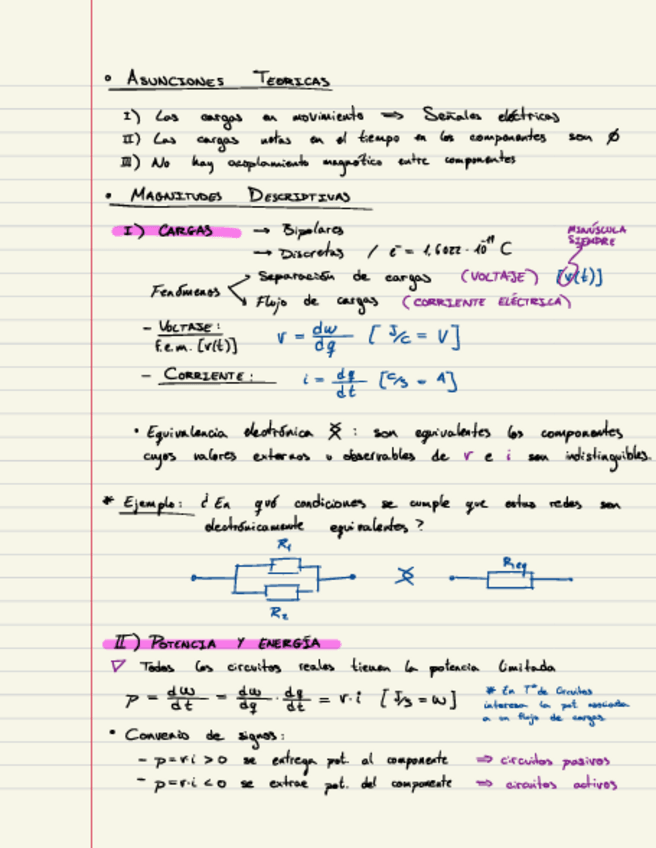 ° ASUNCIONES TEORICAS
I) Las cargas en movimiento ⇒ Señales eléctricas
II) Las cargas netas en el tiempo en los componentes son ∅
III) No hay acoplamiento magnético entre componentes
• MAGNITUDES DESCRIPTIVAS
I) CARGAS → Bipolares
→ Discretas / e⁻ = 1,6022 · 10⁻¹⁹ C
MINÚSCULA
SIEMPRE
Fenómenos
Separación de cargas (VOLTAJE) [v(t)]
Flujo de cargas (CORRIENTE ELÉCTRICA)
- VOLTAJE: v = dw/dq [J/C = V]
f.e.m. [v(t)]
- CORRIENTE: i = dq/dt [C/s = A]
• Equivalencia electrónica : son equivalentes los componentes
cuyos valores externos u observables de v e i son indistinguibles.
* Ejemplo: ¿En qué condiciones se cumple que estas redes son
electrónicamente equivalentes?
R₁
Req
R₂
II) POTENCIA Y ENERGÍA
▽ Todos los circuitos reales tienen la potencia limitada
p = dw/dt = dw/dq · dq/dt = v·i [J/s = w]
* En Tª de Circuitos
interesa la pot asociada
a un flujo de cargas
• Convenio de signos:
- p=v·i > 0 se entrega pot. al componente ⇒ circuitos pasivos
- p=v·i < 0 se extrae pot. del componente ⇒ circuitos activos